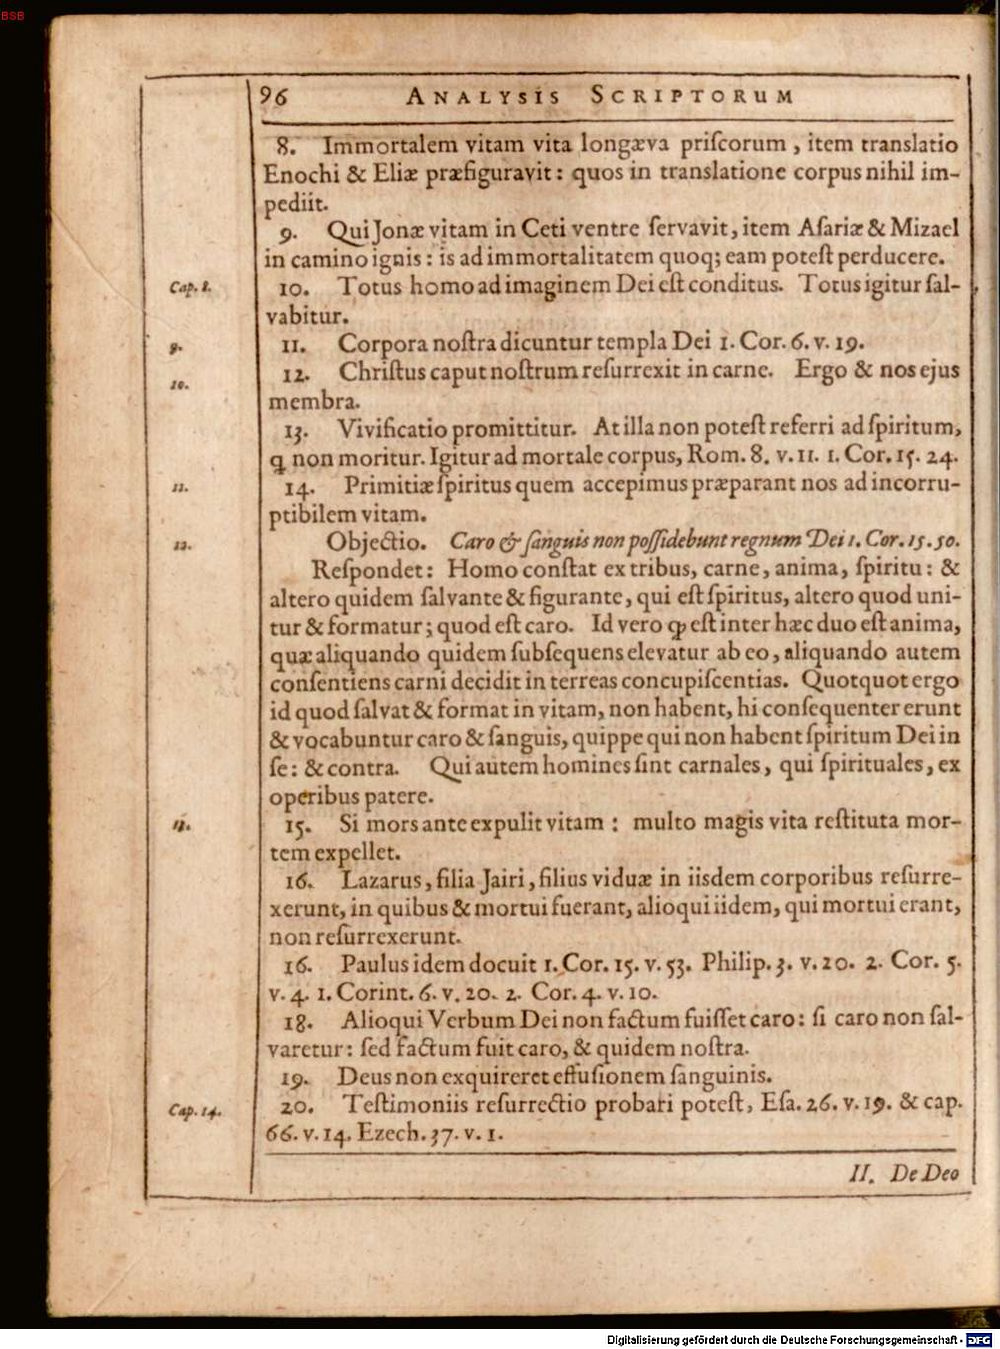 BSB
96 ANALYSIS SCRIPTORUM
8. Immortalem vitam vita longæva priſcorum, item translatio
Enochi & Eliæ præfiguravit: quos in translatione corpus nihil im-
pediit.
9. Qui Jonæ vitam in Ceti ventre ſervavit, item Aſariæ & Mizael
in camino ignis: is ad immortalitatem quoq; eam poteſt perducere.
Cap. 8. 10. Totus homo ad imaginem Dei eſt conditus. Totus igitur ſal-
vabitur.
9. 11. Corpora noſtra dicuntur templa Dei 1. Cor. 6. v. 19.
10. 12. Chriſtus caput noſtrum reſurrexit in carne. Ergo & nos ejus
membra.
13. Vivificatio promittitur. At illa non poteſt referri ad ſpiritum,
q non moritur. Igitur ad mortale corpus, Rom. 8. v. 11. 1. Cor. 15. 24.
11. 14. Primitiæ ſpiritus quem accepimus præparant nos ad incorru-
ptibilem vitam.
12. Objectio. Caro & ſanguis non poſſidebunt regnum Dei 1. Cor. 15. 50.
Reſpondet: Homo conſtat ex tribus, carne, anima, ſpiritu: &
altero quidem ſalvante & figurante, qui eſt ſpiritus, altero quod uni-
tur & formatur; quod eſt caro. Id vero ꝙ eſt inter hæc duo eſt anima,
quæ aliquando quidem ſubſequens elevatur ab eo, aliquando autem
conſentiens carni decidit in terreas concupiſcentias. Quotquot ergo
id quod ſalvat & format in vitam, non habent, hi conſequenter erunt
& vocabuntur caro & ſanguis, quippe qui non habent ſpiritum Dei in
ſe: & contra. Qui autem homines ſint carnales, qui ſpirituales, ex
operibus patere.
15. Si mors ante expulit vitam: multo magis vita reſtituta mor-
tem expellet.
16. Lazarus, filia Jairi, filius viduæ in iisdem corporibus reſurre-
xerunt, in quibus & mortui fuerant, alioqui iidem, qui mortui erant,
non reſurrexerunt.
16. Paulus idem docuit 1. Cor. 15. v. 53. Philip. 3. v. 20. 2. Cor. 5.
v. 4. 1. Corint. 6. v. 20. 2. Cor. 4. v. 10.
18. Alioqui Verbum Dei non factum fuiſſet caro: ſi caro non ſal-
varetur: ſed factum fuit caro, & quidem noſtra.
19. Deus non exquireret effuſionem ſanguinis.
Cap. 14. 20. Teſtimoniis reſurrectio probari poteſt, Eſa. 26. v. 19. & cap.
66. v. 14. Ezech. 37. v. 1.
II. De Deo
Digitalisierung gefördert durch die Deutsche Forschungsgemeinschaft - DFG